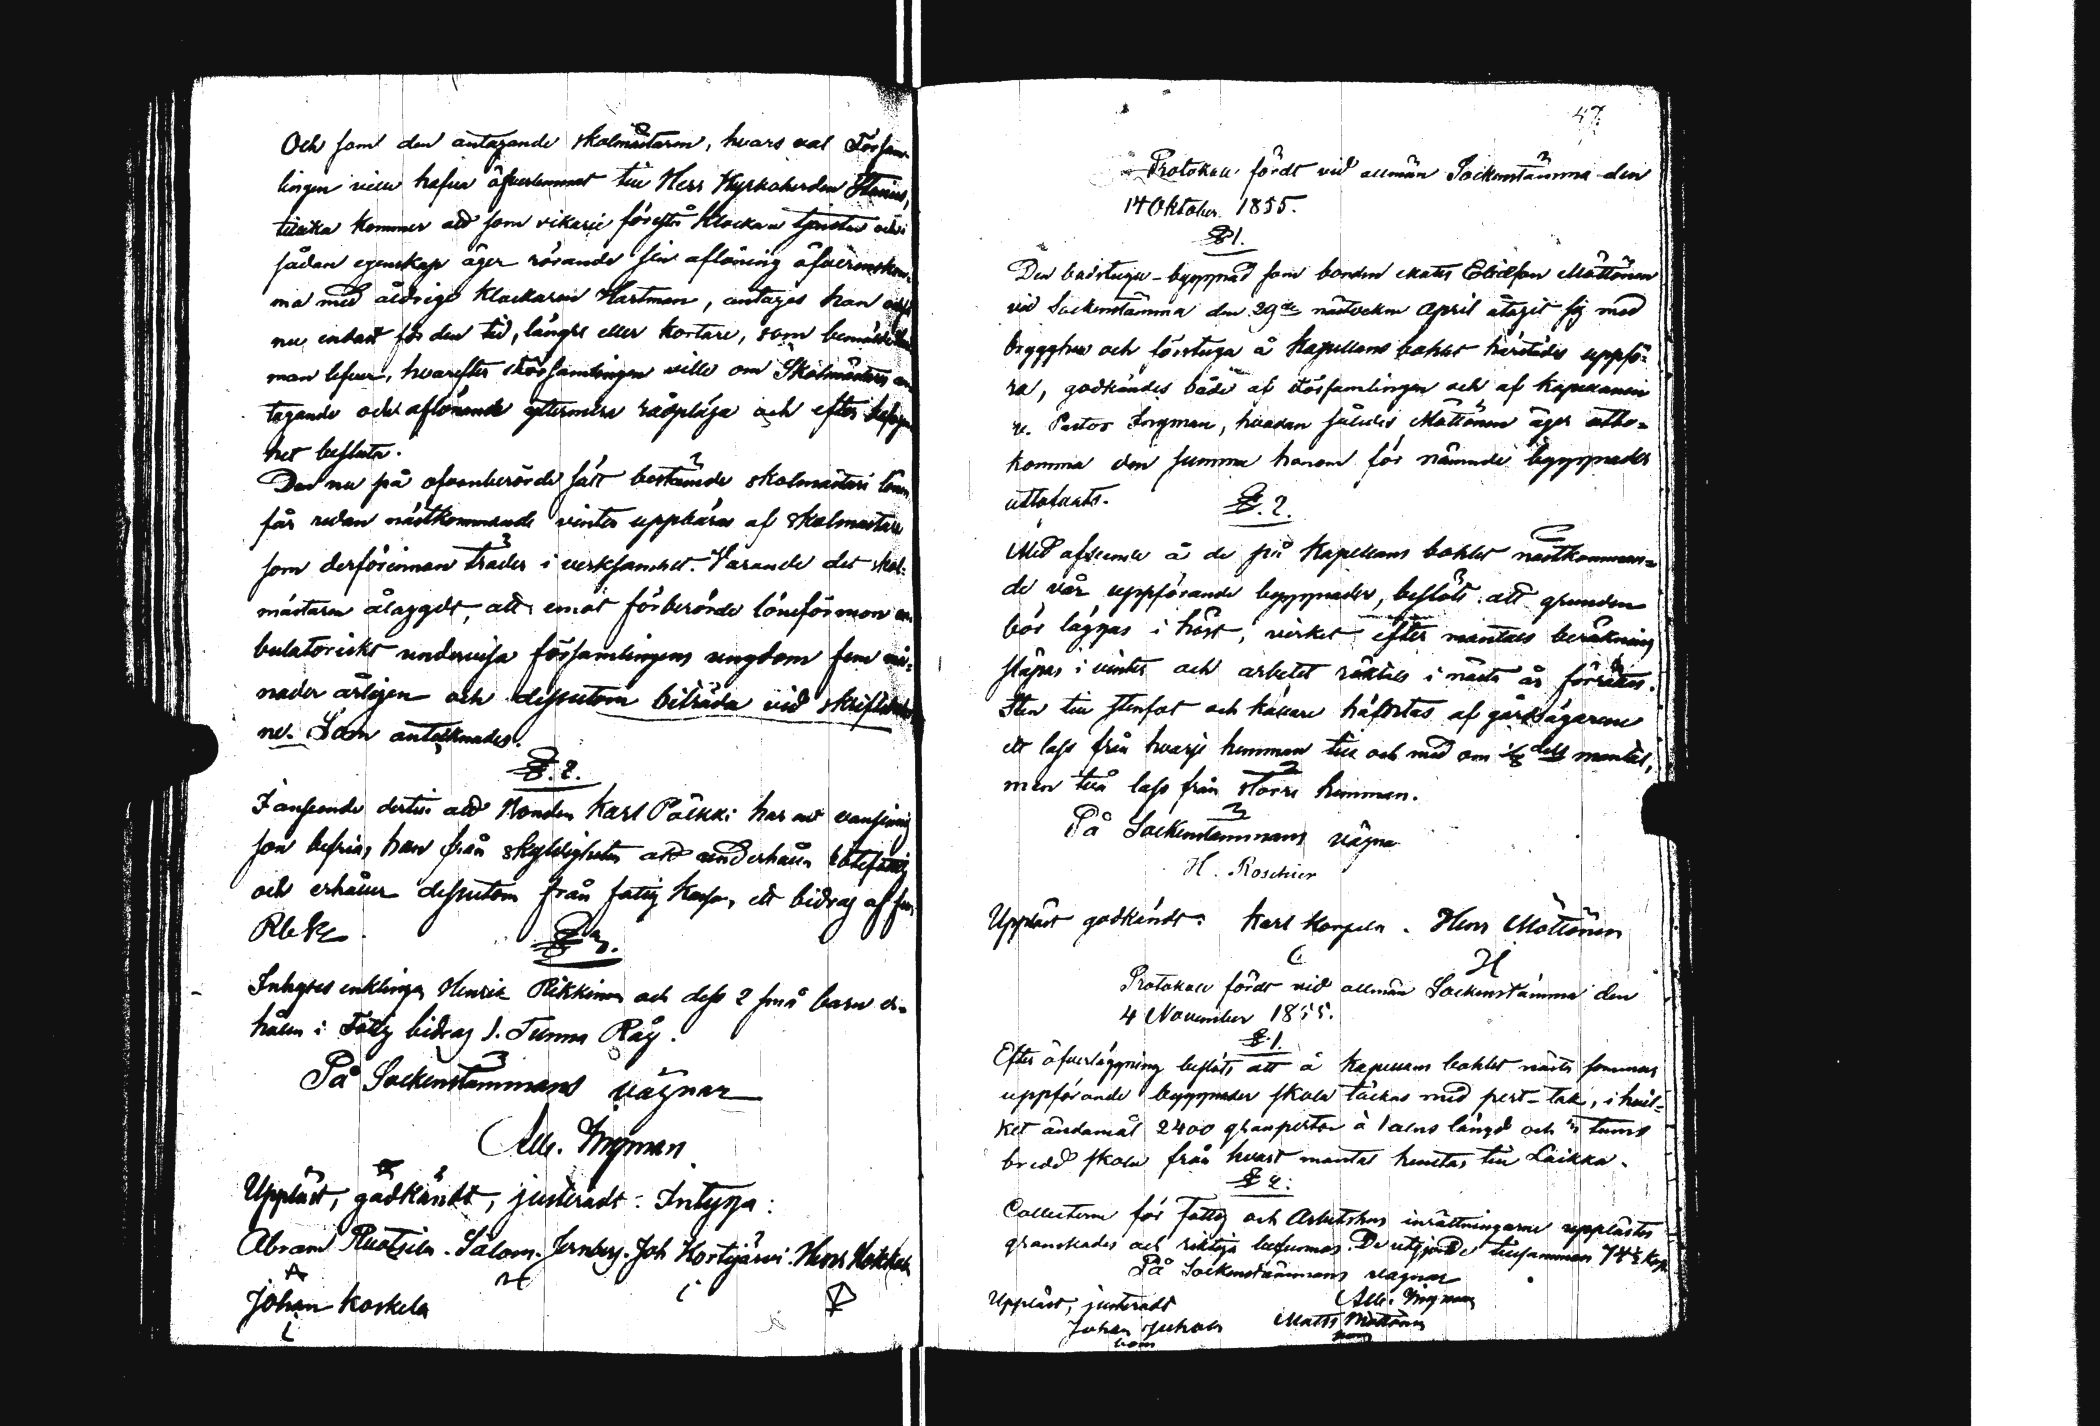 Och som den antagande skolmästaren, hvars val Försam-
lingen velat hafva öfverlemnat till Herr Kyrkoherden
tillika kommer att som vikarie förestå Klockare tjensten och i
sådan egenskap äger rörande sin aflöning öfverenskom-
ma med åldrige Klockaren Hartman, antages han
nu endast för den tid, längre eller kortare, som
man lefver, hvarefter Församlingen ville om Skolmästars an-
tagande och aflönande yttermera rådpläga och efter befogen-
het besluta.
Den nu på ofvanberörde sätt bestämde skolmästare lönen
får redan nästkommande vinter uppbäras af skolmästare
som derförinnan träder i verksamhet. Varande det skol-
mästaren ålagdt, att emot förberörde löneförmon am-
bulatoriskt undervisa församlingens ungdom fem må-
nader årligen och dessutom biträda vid skriftskolor-
ne. Som antecknades.
§. 2.
I anseende dertill att Bonden Karl Pölkki har en vansinnig
son befrias han från skyldigheten att underhålla rotefattig
och erhåller dessutom från fattig Kassan ett bidrag af fem
Rb Sr.
§ 3.
Inhyses enklingen Henrik Rikkinen och dess 2 små barn er-
hålla i Fattig bidrag 1. Tunna Råg.
På Sockenstämmans vägnar
Alb. Ingman
Uppläst, godkändt, justeradt: Intyga:
Abram Ruotsila. Salom. Jernberg. Joh Kortejärvi. Henr
Johan Koskela
47.
Protokoll fördt vid allmän Sockenstämma den
14 Oktober 1855.
§ 1.
Den badstugu-byggnad som bonden Matts Mottönen
vid Sockenstämma den 29de nästvekne April åtagit sig med
brygghus och förstuga å Kapellans bohlet härstädes uppfö-
ra, godkändes både af Församlingen och af Kapellanen
v. Pastor Ingman, hvadan således Mottönen äger utbe-
komma den summa honom för nämnde byggnader
utlofvats.
§. 2.
Med afseende å de på Kapellans bohlet nästkomman-
de vår uppförande byggnader, beslöts att grunden
bör läggas i höst, virket efter mantals beräkning
släpas i vinter och arbetet i nästa år förrättas.
Sten till stenfot och källare häfvtas af gårdsägarene
ett lass från hvarje hemman till och med om 1/8 dels mantal,
men två lass från större hemman.
På Sockenstämmans vägna
H. Roschier
Uppläst godkändt: Karl Korpela. Henr Mottönen
Protokoll fördt vid allmän Sockenstämma den
4 November 1855.
§. 1.
Efter öfverläggning beslöts att å Kapellans bohlet nästa sommar
uppförande byggnader skola täckas med pert-tak, i hvil-
ket ändamål 2400 granpertor à 1 alns längd och tums
bredd skola från hvart mantal hemtas till Laikka.
§ 2:
Collecterne för Fattig och Arbetshus inrättningarne upplästes
granskades och riktiga befunnos. De utgjorde tillsammans 74½ Kop.
På Sockenstämmans vägnar
Alb. Ingman
Uppläst, justeradt
Johan Matts Mottönen